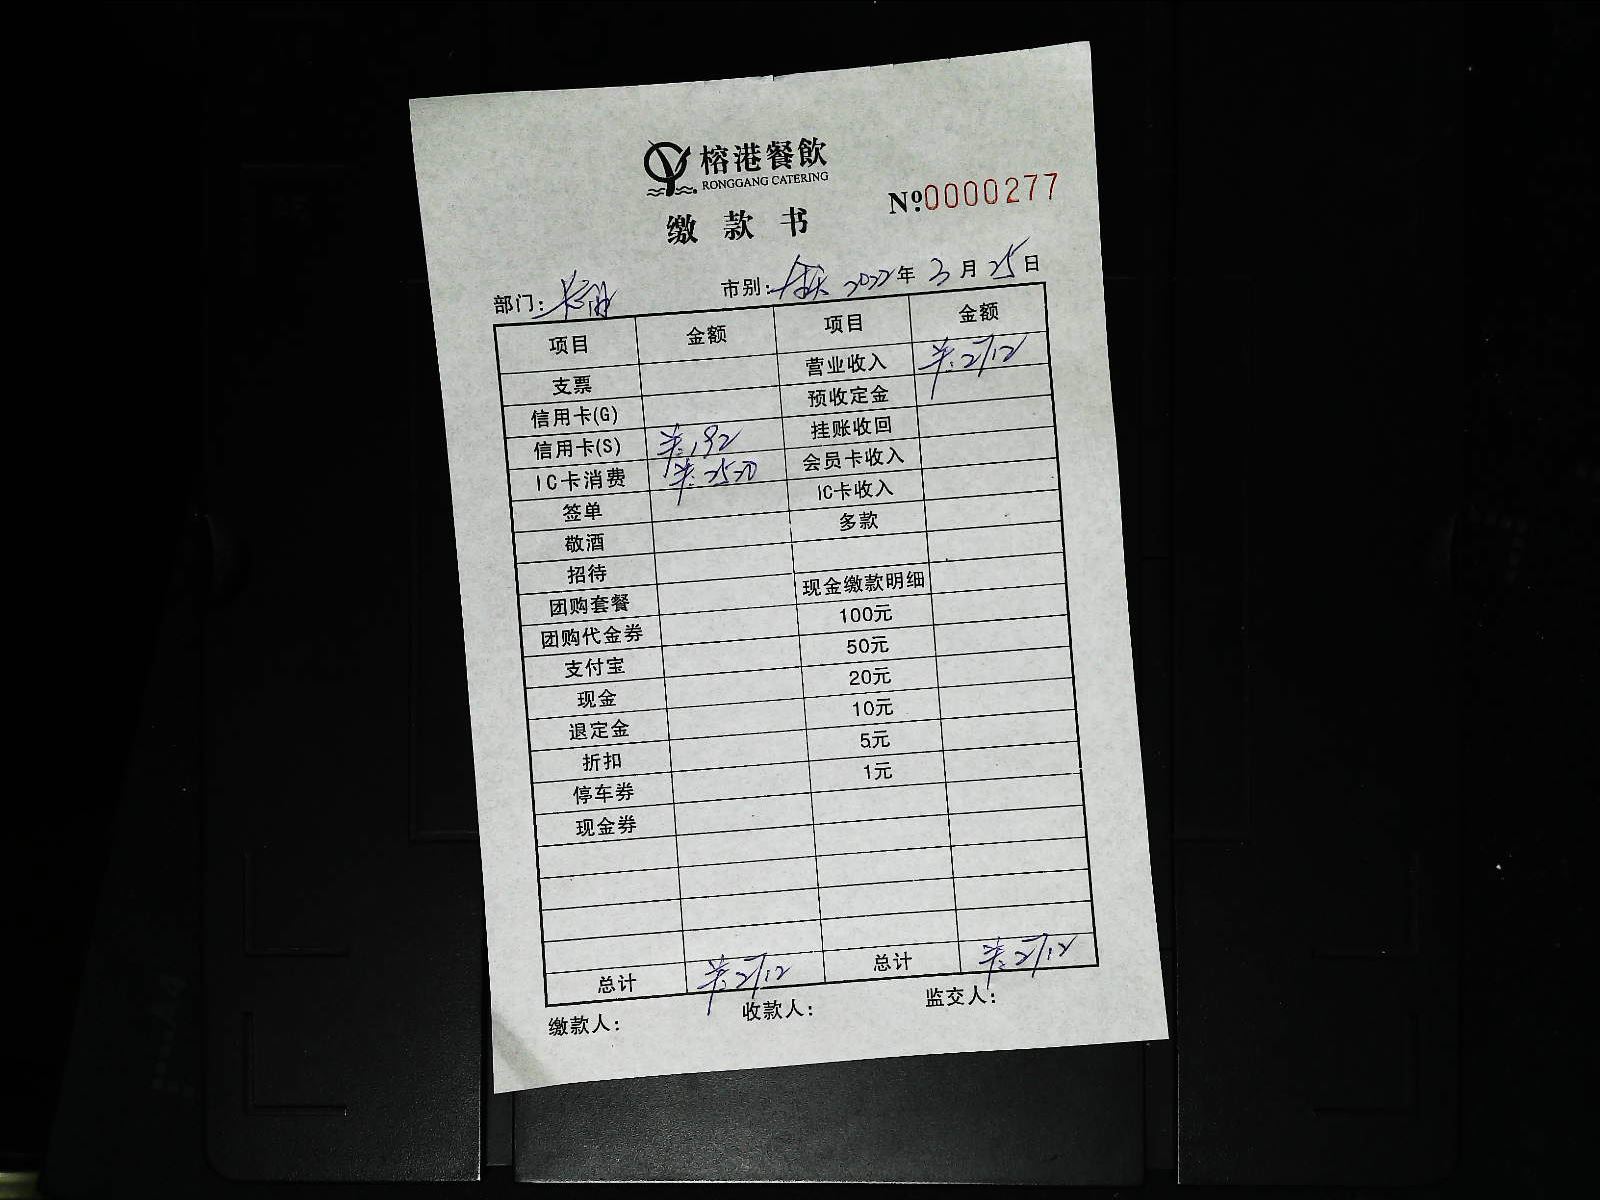 榕港餐飲
RONGGANG CATERING
缴款书
Nº0000277
部门: 市别:全天 2022年3月25日
项目 金额 项目 金额
支票 营业收入 ¥:2712
信用卡(G) 预收定金
信用卡(S) ¥:192 挂账收回
IC卡消费 ¥:2520 会员卡收入
签单 IC卡收入
敬酒 多款
招待
团购套餐 现金缴款明细
团购代金券 100元
支付宝 50元
现金 20元
退定金 10元
折扣 5元
停车券 1元
现金券
总计 ¥:2712 总计 ¥:2712
缴款人: 收款人: 监交人: